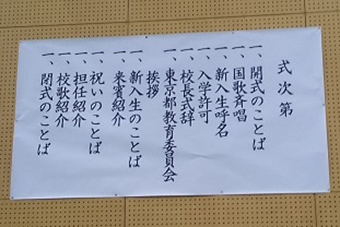 式次第
一、開式のことば
一、国歌斉唱
一、新入生呼名
一、入学許可
一、校長式辞
一、東京都教育委員会
挨拶
一、新入生のことば
一、来賓紹介
一、祝いのことば
一、担任紹介
一、校歌紹介
一、閉式のことば